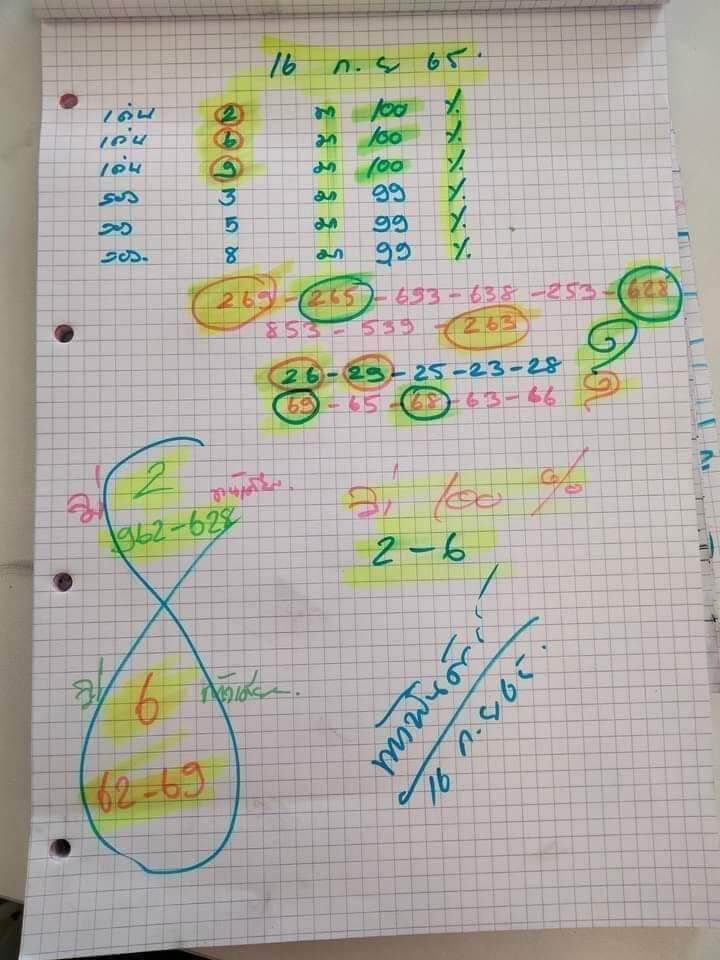 16 ก.ย 65.
เด่น 2 มา 100 %
เด่น 6 มา 100 %
เด่น 9 มา 100 %
รอง 3 มา 99 %
รอง 5 มา 99 %
รอง. 8 มา 99 %
269 - 265 - 693 - 638 - 253 - 628
853 - 539 - 263
26 - 29 - 25 - 23 - 28
69 - 65 - 68 - 63 - 66
2
962 - 628
100 %
2 - 6
6
62 - 69
16 ก.ย 65.